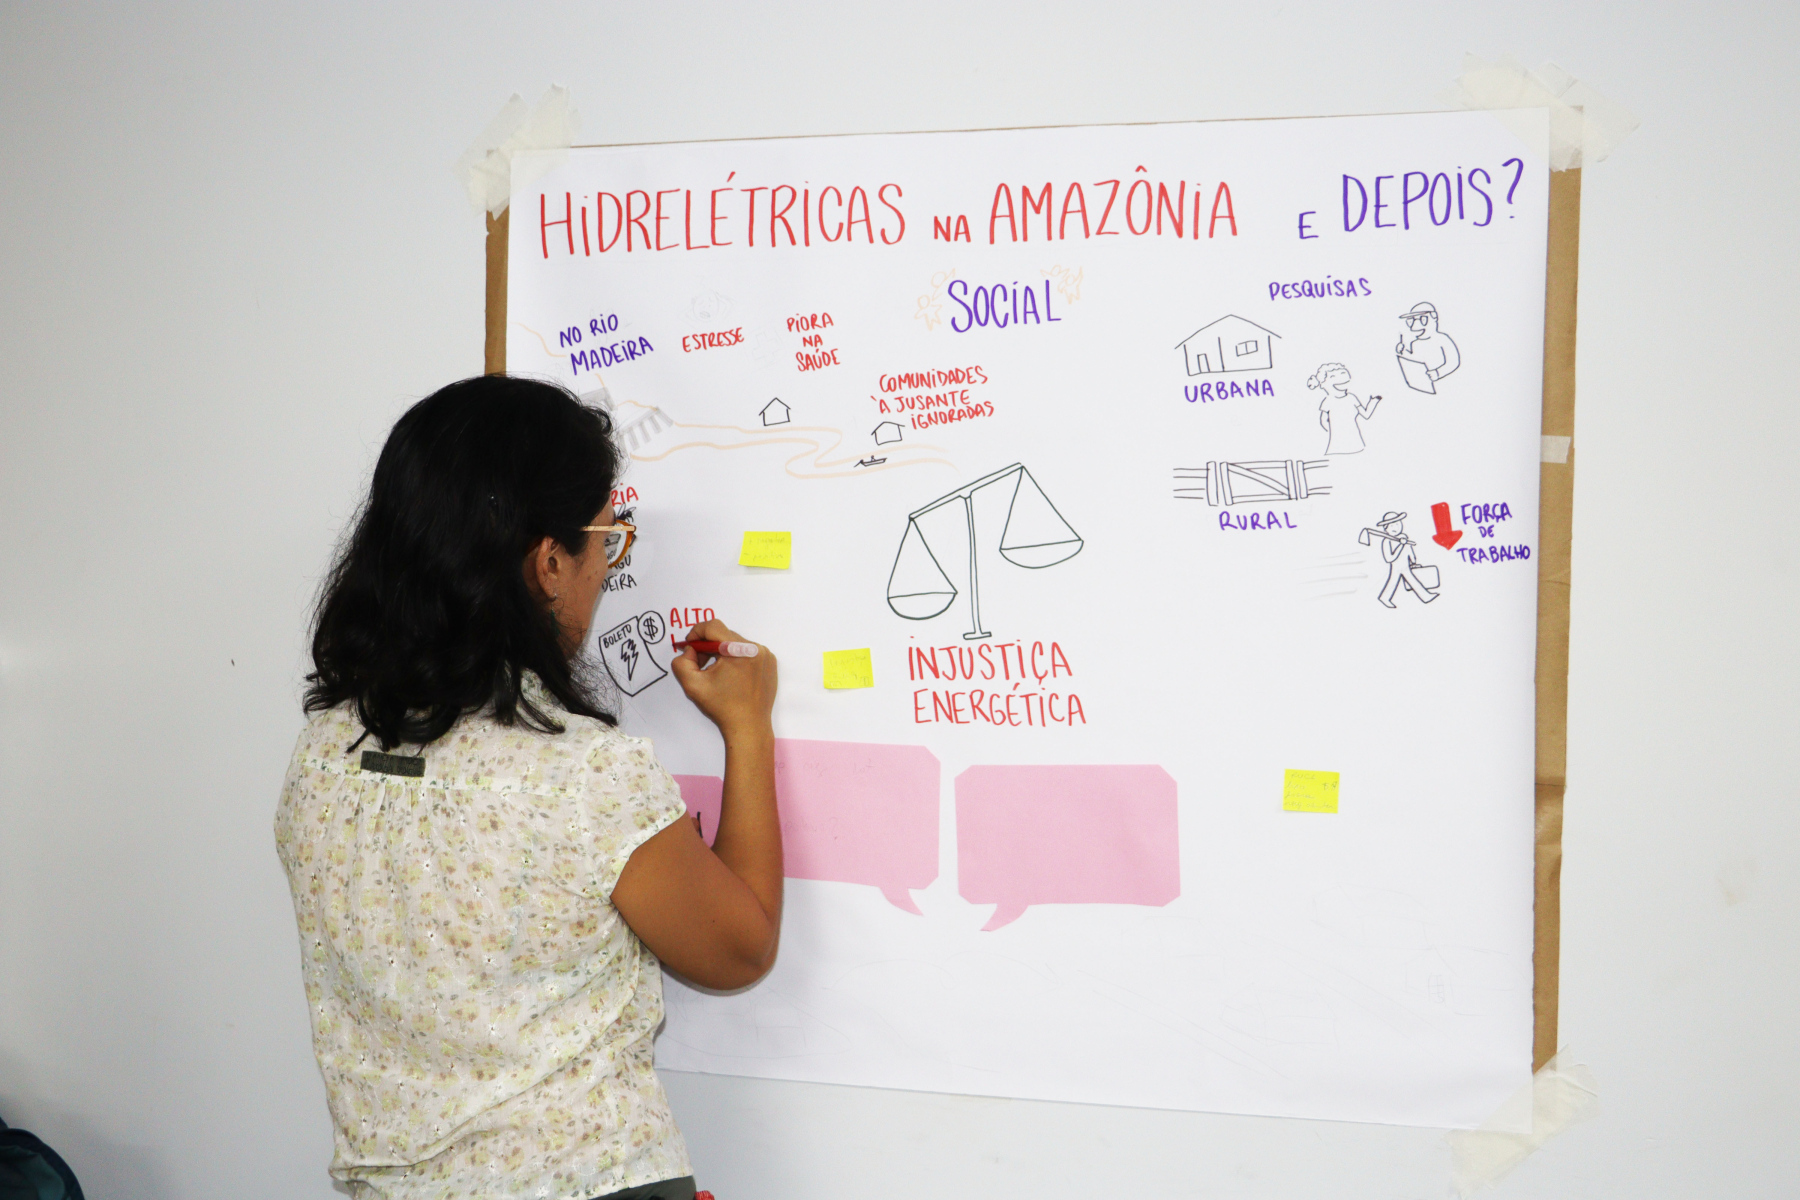 HIDRELÉTRICAS NA AMAZÔNIA E DEPOIS?
SOCIAL
NO RIO
MADEIRA
ESTRESSE
PIORA
NA
SAÚDE
COMUNIDADES
À JUSANTE
IGNORADAS
BOLETO
$
ALTO
INJUSTIÇA
ENERGÉTICA
PESQUISAS
URBANA
RURAL
FORÇA
DE
TRABALHO